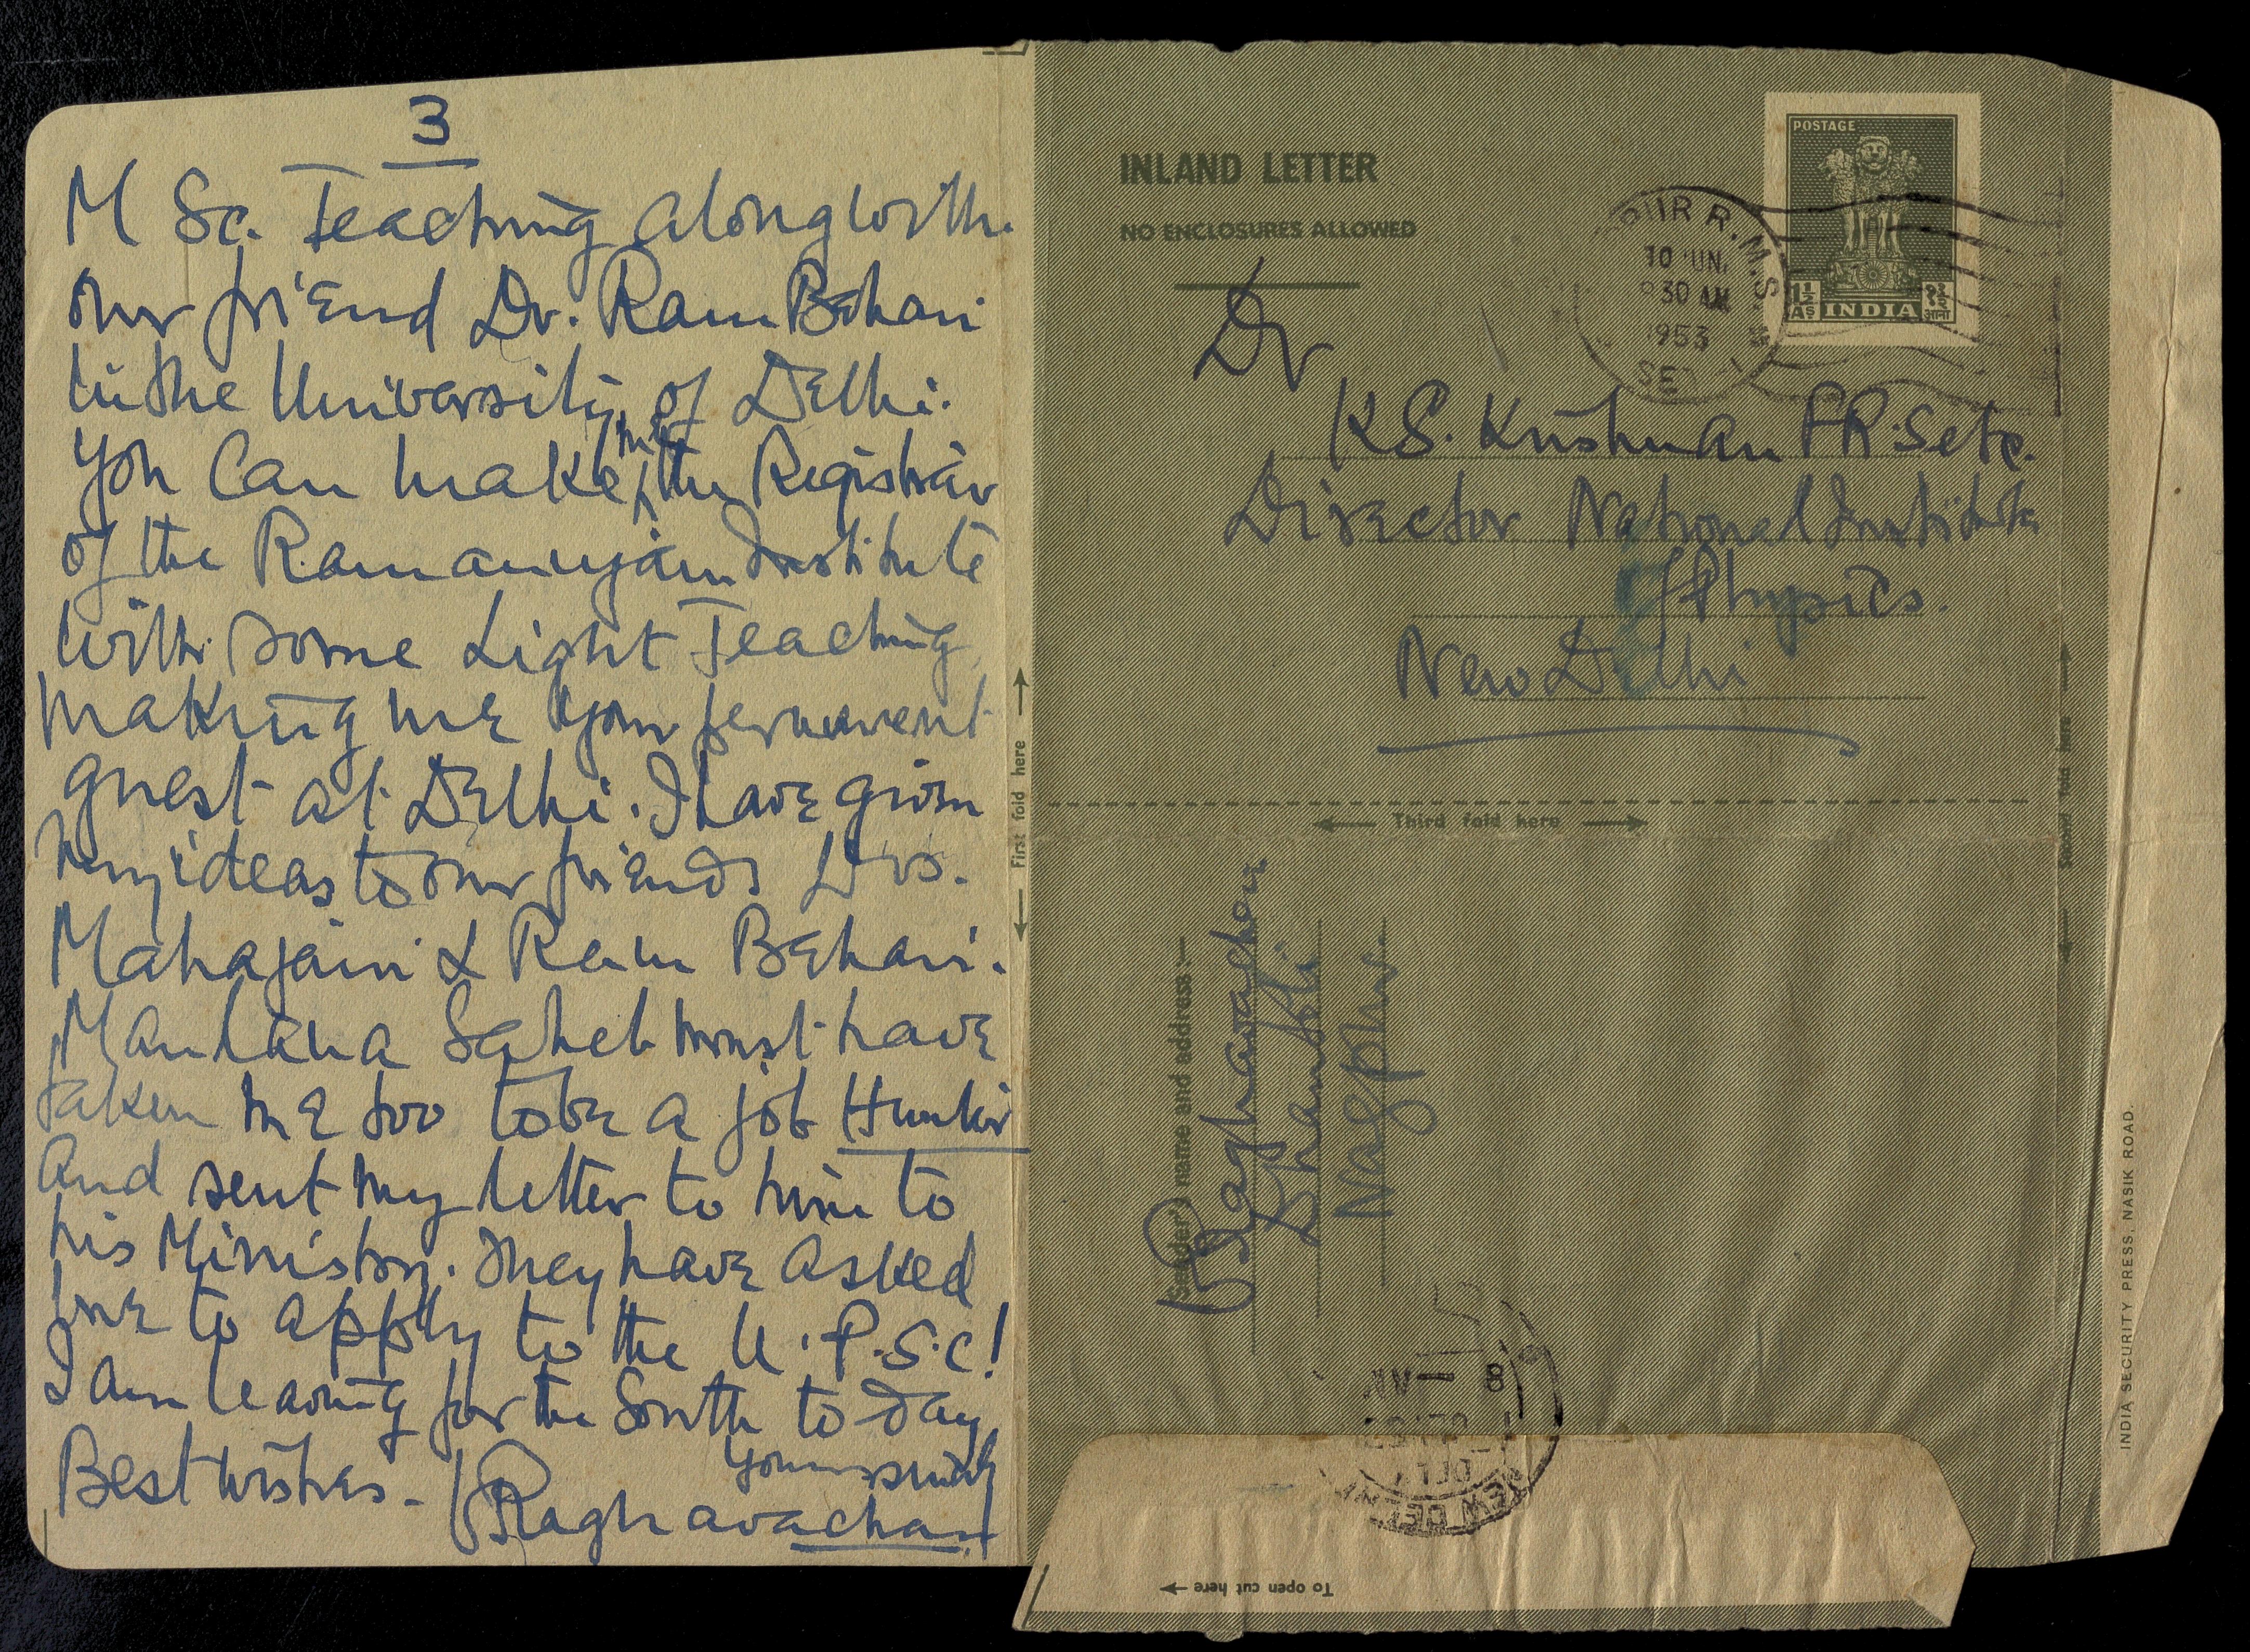 3
M Sc. Teaching along with
our friend Dr. Ram Behari
in the University of Delhi.
You can make me the Registrar
of the Ramanujam Institute
with some Light Teaching
making me your permanent
guest at Delhi. I have given
my ideas to our friends Drs.
Mahajani & Ram Behari.
Maulana Saheb must have
taken me too to be a job Hunter
and sent my letter to him to
his Ministry. They have asked
me to apply to the U.P.S.C!
I am leaving for the South to-day
Best wishes. Yours sincely
Raghavachari
First fold here
INLAND LETTER
NO ENCLOSURES ALLOWED
POSTAGE
1½ As INDIA १½ आना
R.M.S.
30 AM
1953
SET
Dr
K.S. Krishnan F.R.S etc.
Director National Institute
of Physics.
New Delhi
Third fold here
Second fold here
Sender's name and address :—
Raghavachari
Dhantoli
Nagpur.
NEW DELHI
8
To open cut here
INDIA SECURITY PRESS, NASIK ROAD.